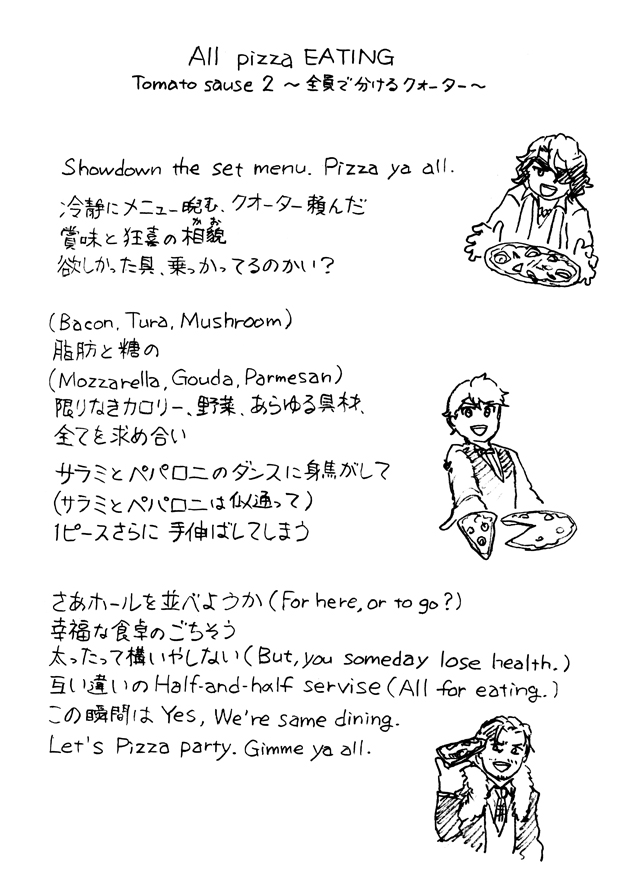 All pizza EATING
Tomato sause 2 ～全員で分けるクォーター～
Showdown the set menu. Pizza ya all.
冷静にメニュー睨む、クオーター頼んだ
かお
賞味と狂喜の相貌
欲しかった具、乗っかってるのかい？
(Bacon, Tura, Mushroom)
脂肪と糖の
(Mozzarella, Gouda, Parmesan)
限りなきカロリー、野菜、あらゆる具材、
全てを求め合い
サラミとペパロニのダンスに身焦がして
(サラミとペパロニは似通って)
1ピースさらに手伸ばしてしまう
さあホールを並べようか(For here, or to go?)
幸福な食卓のごちそう
太ったって構いやしない(But, you someday lose health.)
互い違いのHalf-and-half servise(All for eating.)
この瞬間は Yes, We're same dining.
Let's Pizza party. Gimme ya all.